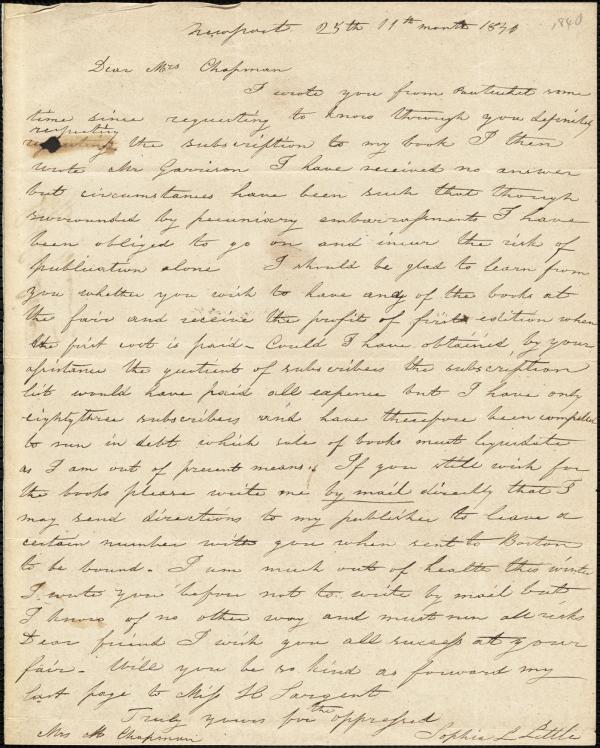 Newport 25th 11th month 1840
1840
Dear Mrs Chapman
I wrote you from Pawtucket some
time since requesting to know through you definitely
respecting
the subscription to my book I then
wrote Mr Garrison I have received no answer
but circumstances have been such that though
surrounded by pecuniary embarrassments I have
been obliged to go on and incur the risk of
publication alone I should be glad to learn from
you whether you wish to have any of the books at
the fair and receive the profits of first edition when
the first cost is paid - Could I have obtained by your
assistance the quotient of subscribers the subscription
list would have paid all expense but I have only
eightythree subscribers and have therefore been compelled
to run in debt which sale of books must liquidate
as I am out of present means. If you still wish for
the books please write me by mail directly that I
may send directions to my publisher to leave a
certain number with you when sent to Boston
to be bound. I am much out of health this winter
I wrote you before not to write by mail but
I know of no other way and must run all risks
Dear friend I wish you all success at your
fair. Will you be so kind as forward my
last page to Miss H Sargent
Truly yours for the oppressed
Mrs M Chapman Sophia L Little